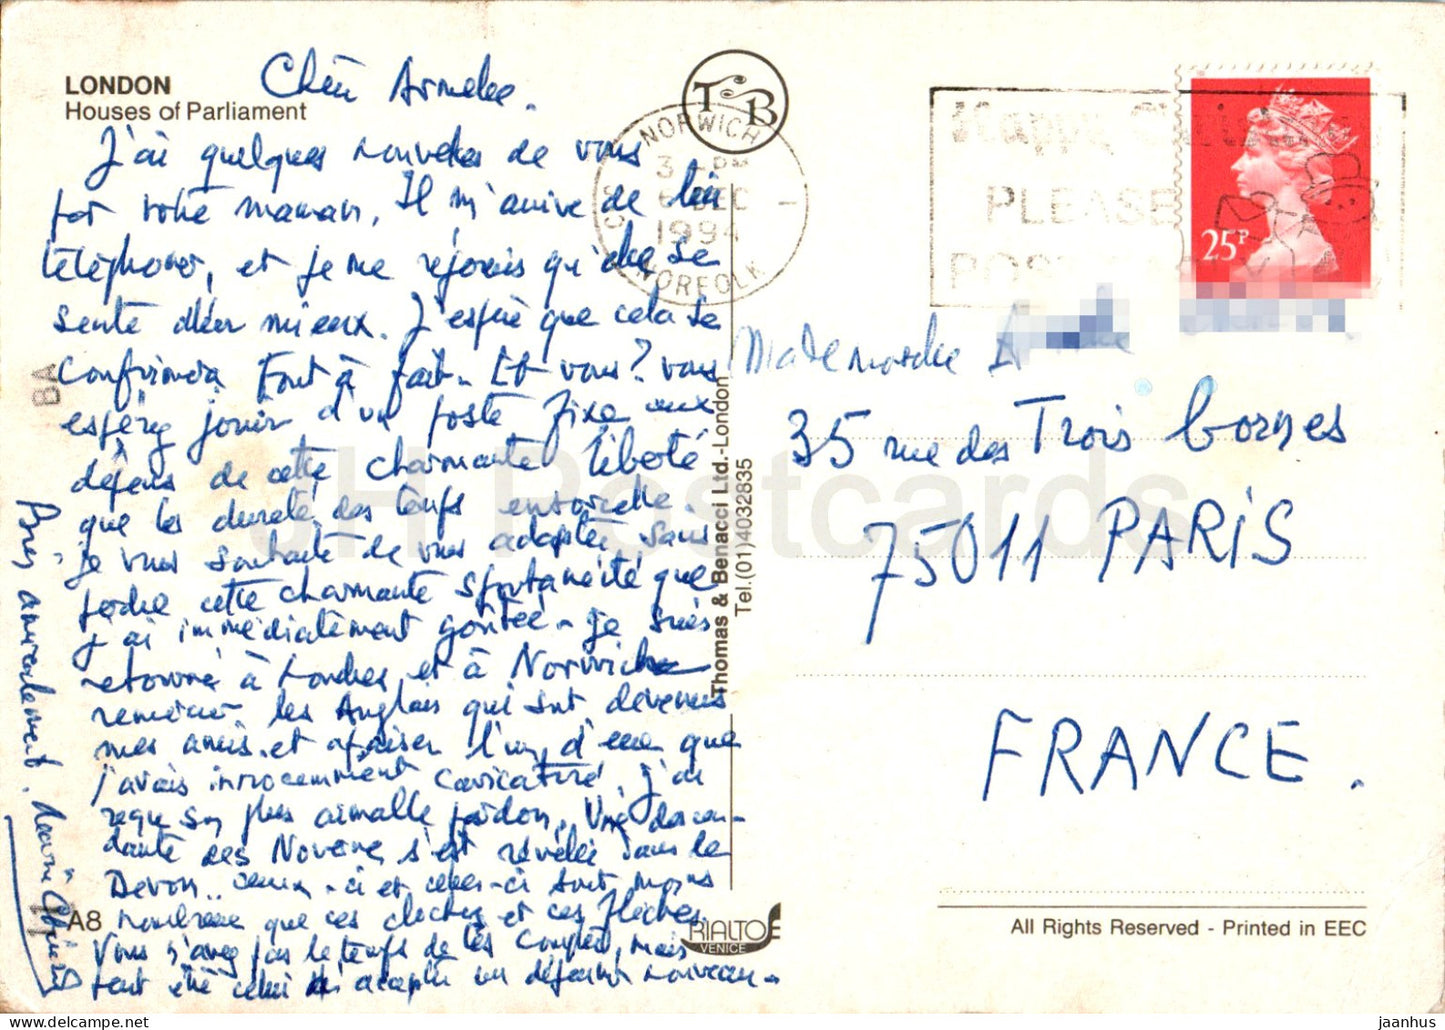 LONDON
Houses of Parliament
Chère Armelle.
J'ai quelques nouvelles de vous
par votre maman. Il m'arrive de lui
téléphoner, et je me réjouis qu'elle se
sente bien mieux. J'espère que cela se
confirmera tout à fait. Et vous? vous
espérez jouir d'un poste fixe aux
dépens de cette charmante liberté
que les dureté des temps ensorcelle.
je vous souhaite de vous adapter sans
perdre cette charmante spontanéité que
j'ai immédiatement goûtée. Je suis
retourné à Londres et à Norwich
remercier les Anglais qui sont devenus
mes amis. et apaiser l'un d'eux que
j'avais innocemment caricaturé. j'ai
reçu son plus aimable pardon. Une descen-
dante des s'est révélée dans le
Devon. ceux-ci et celles-ci sont moins
nombreux que ces clochers et ces flèches.
Vous n'avez pas le temps de les compter, mais
peut être celui d'accepter un nouveau
Bien amicalement.
T B
NORWICH
3 - PM
6 DEC
1994
NORFOLK
Happy Christmas
PLEASE
POST
25P
Mademoiselle
35 rue des Trois bornes
75011 PARIS
FRANCE.
Thomas & Benacci Ltd.-London
Tel.(01)4032835
8A
A8
RIALTO
VENICE
All Rights Reserved - Printed in EEC
JH Postcards
eu.jhpostcards.com
jaanhus